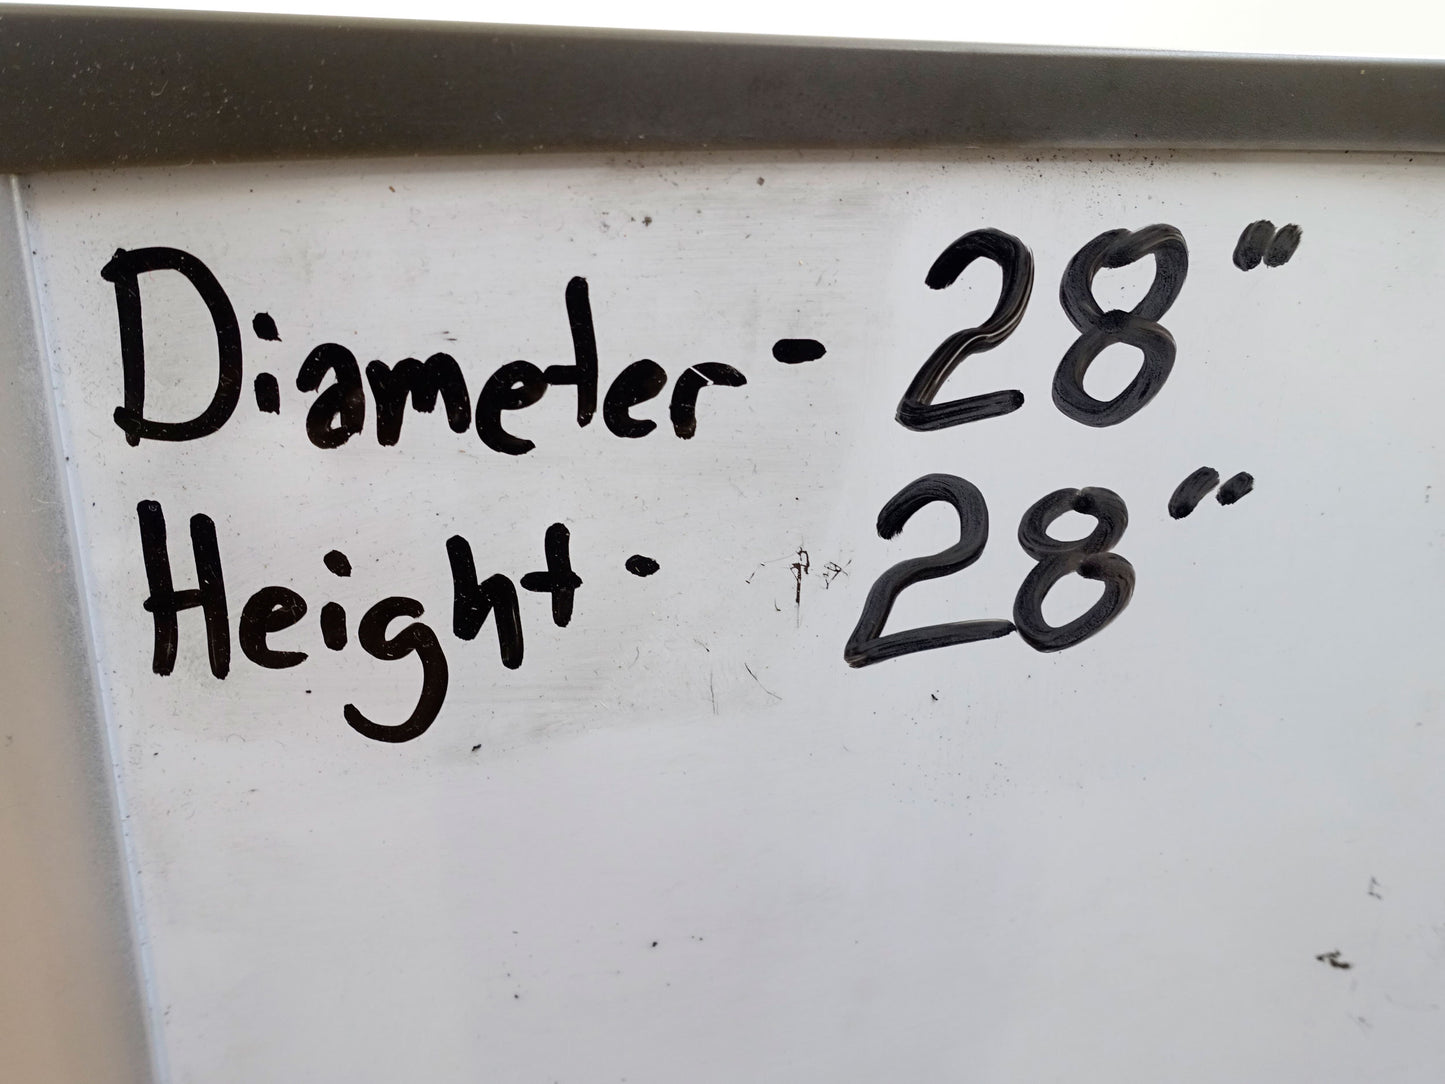 Diameter - 28"
Height - 28"